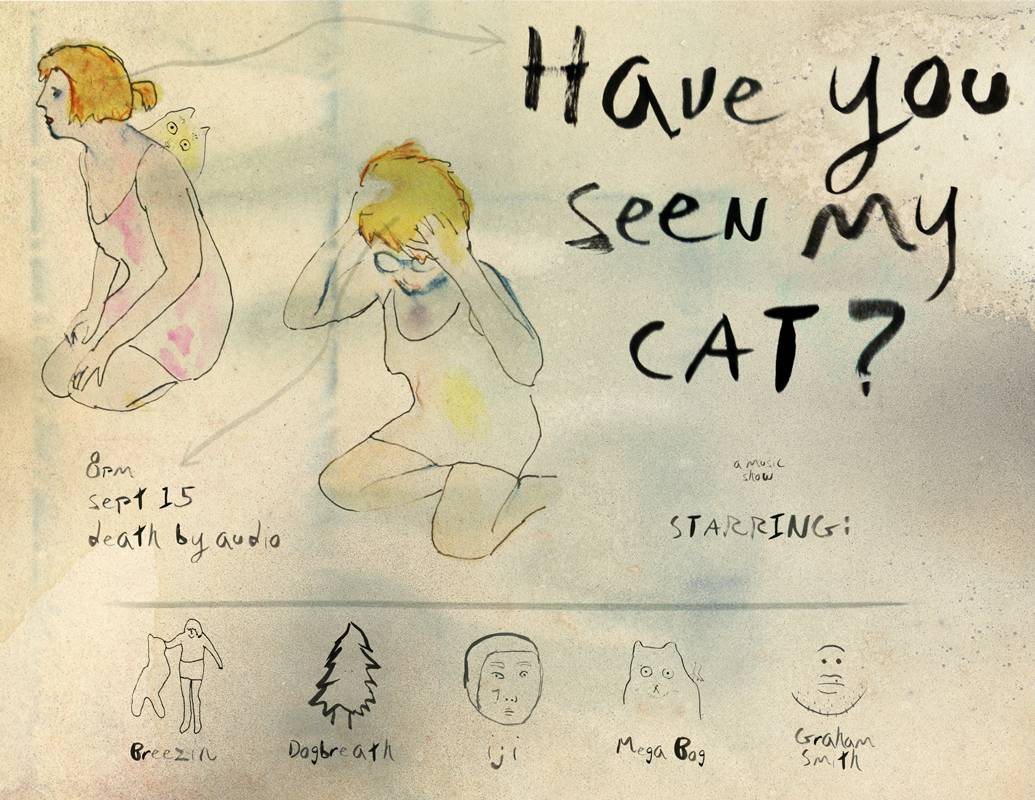 Have you
seen my
CAT?
8pm
sept 15
death by audio
a music
show
STARRING:
Breezin
Dogbreath
iji
Mega Bog
Graham
Smith